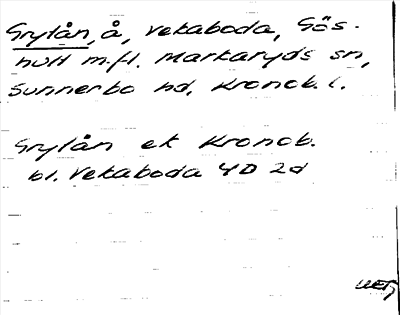 Grylån, å, Vekaboda, Gös-
hult m.fl. Markaryds sn,
Sunnerbo hd, Kronob. l.
Grylån ek Kronob.
bl. Vekaboda 4D 2d